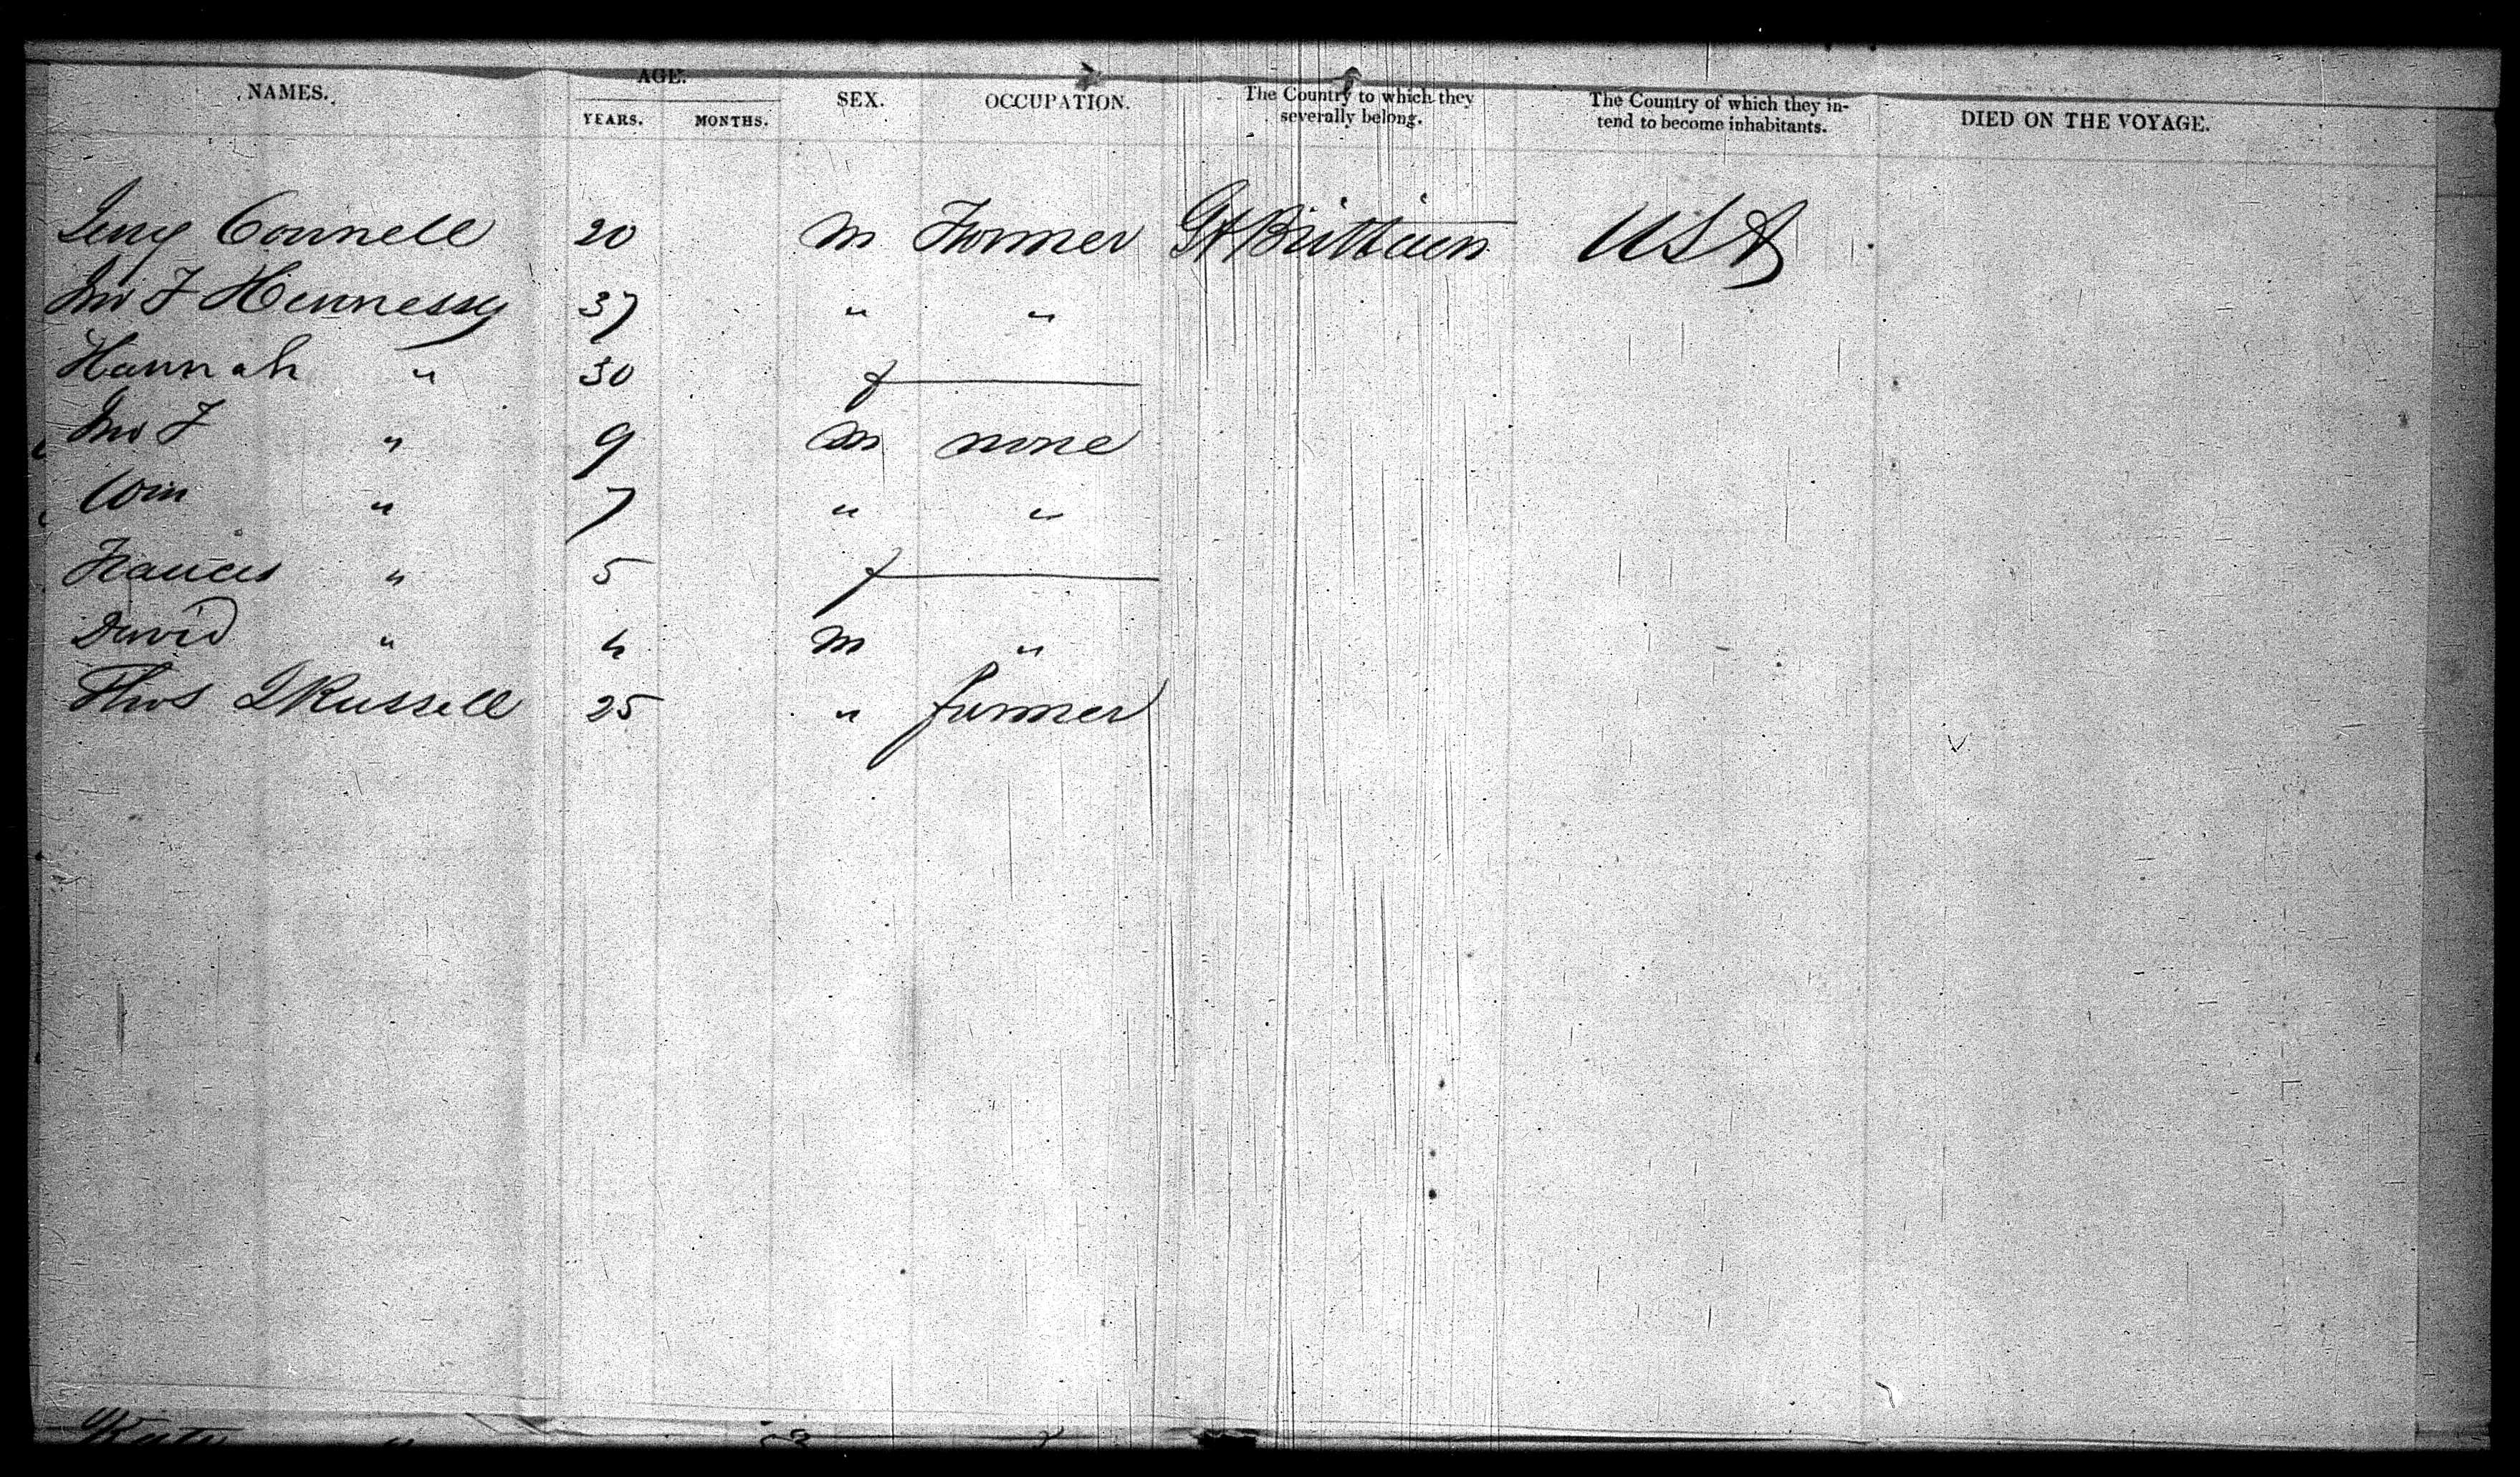 NAMES. AGE. SEX. OCCUPATION. The Country to which they severally belong. The Country of which they in- tend to become inhabitants. DIED ON THE VOYAGE.
YEARS. MONTHS.
Jerry Connell 20 M Farmer Gt Brittain USA
Jno F Hennessy 37 " "
Hannah " 30 f
Jno F " 9 M none
Wm " 7 " "
Frances " 5 f
David " 4 M "
Thos J Russell 25 " farmer
Kate "